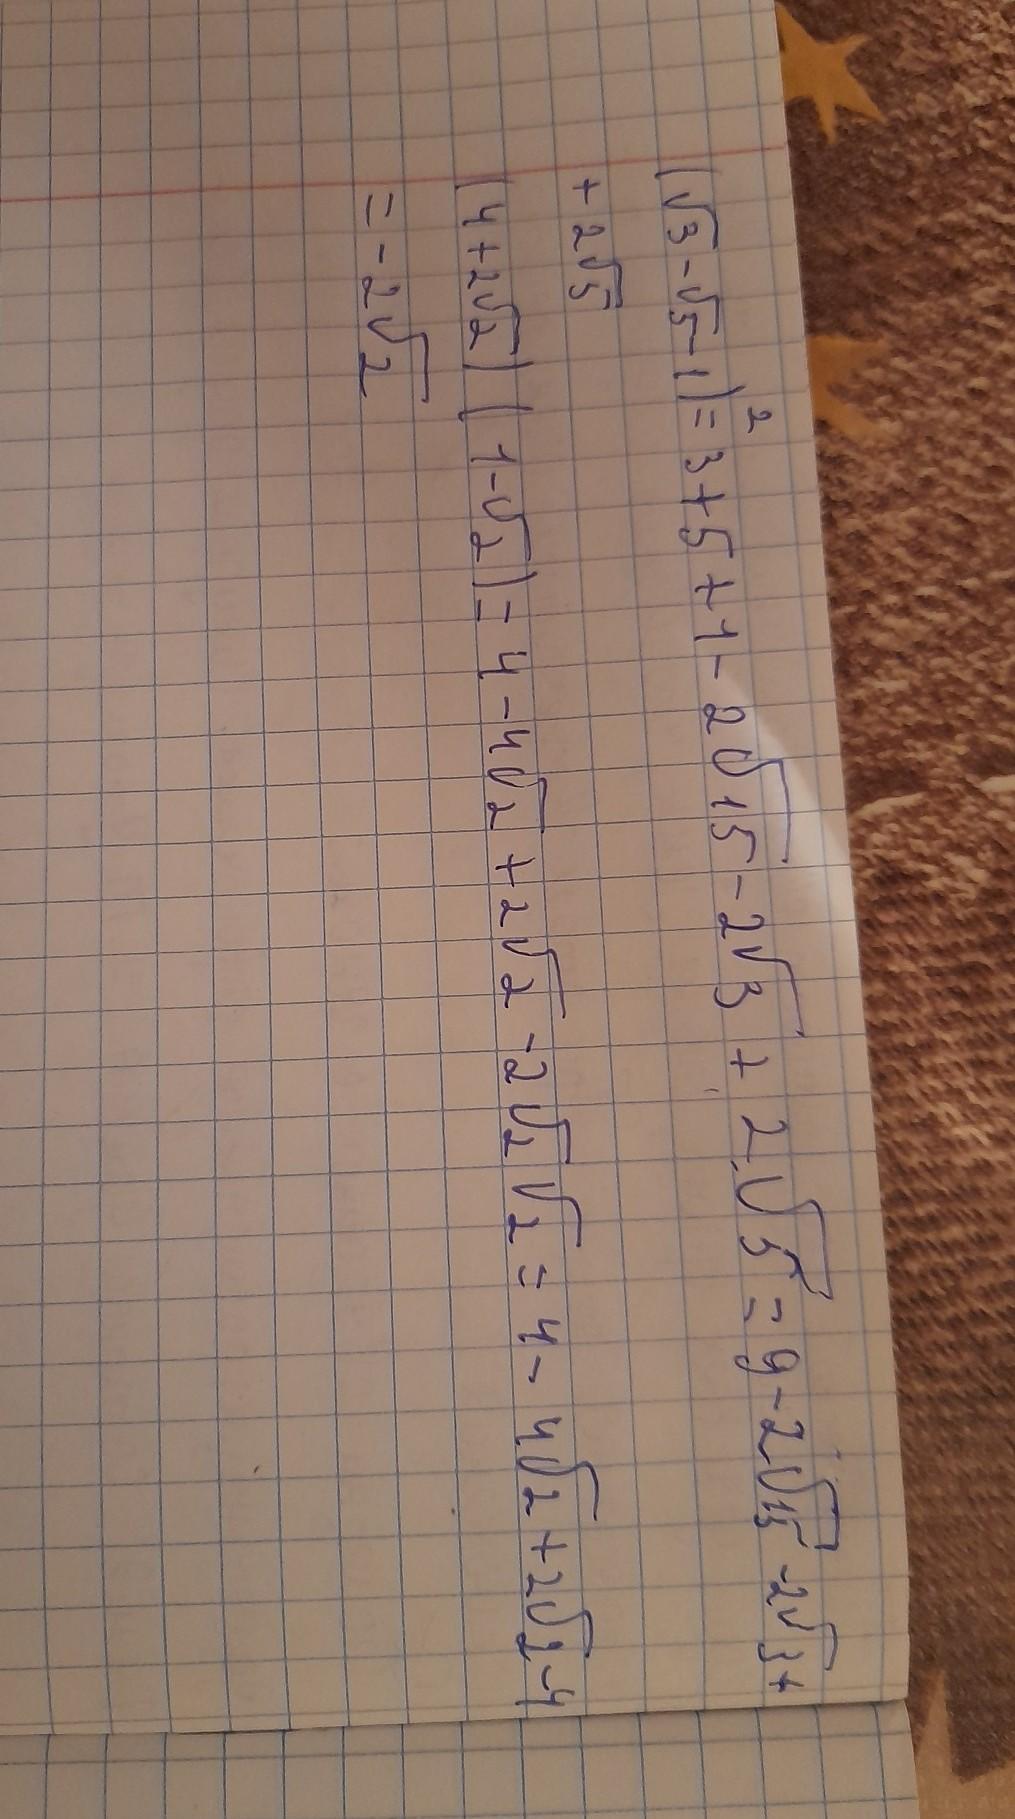 (√3-√5-1)² = 3+5+1-2√15-2√3+2√5 = 9-2√15-2√3+
+2√5
(4+2√2)(1-√2) = 4-4√2+2√2-2√2√2 = 4-4√2+2√2-4
= -2√2